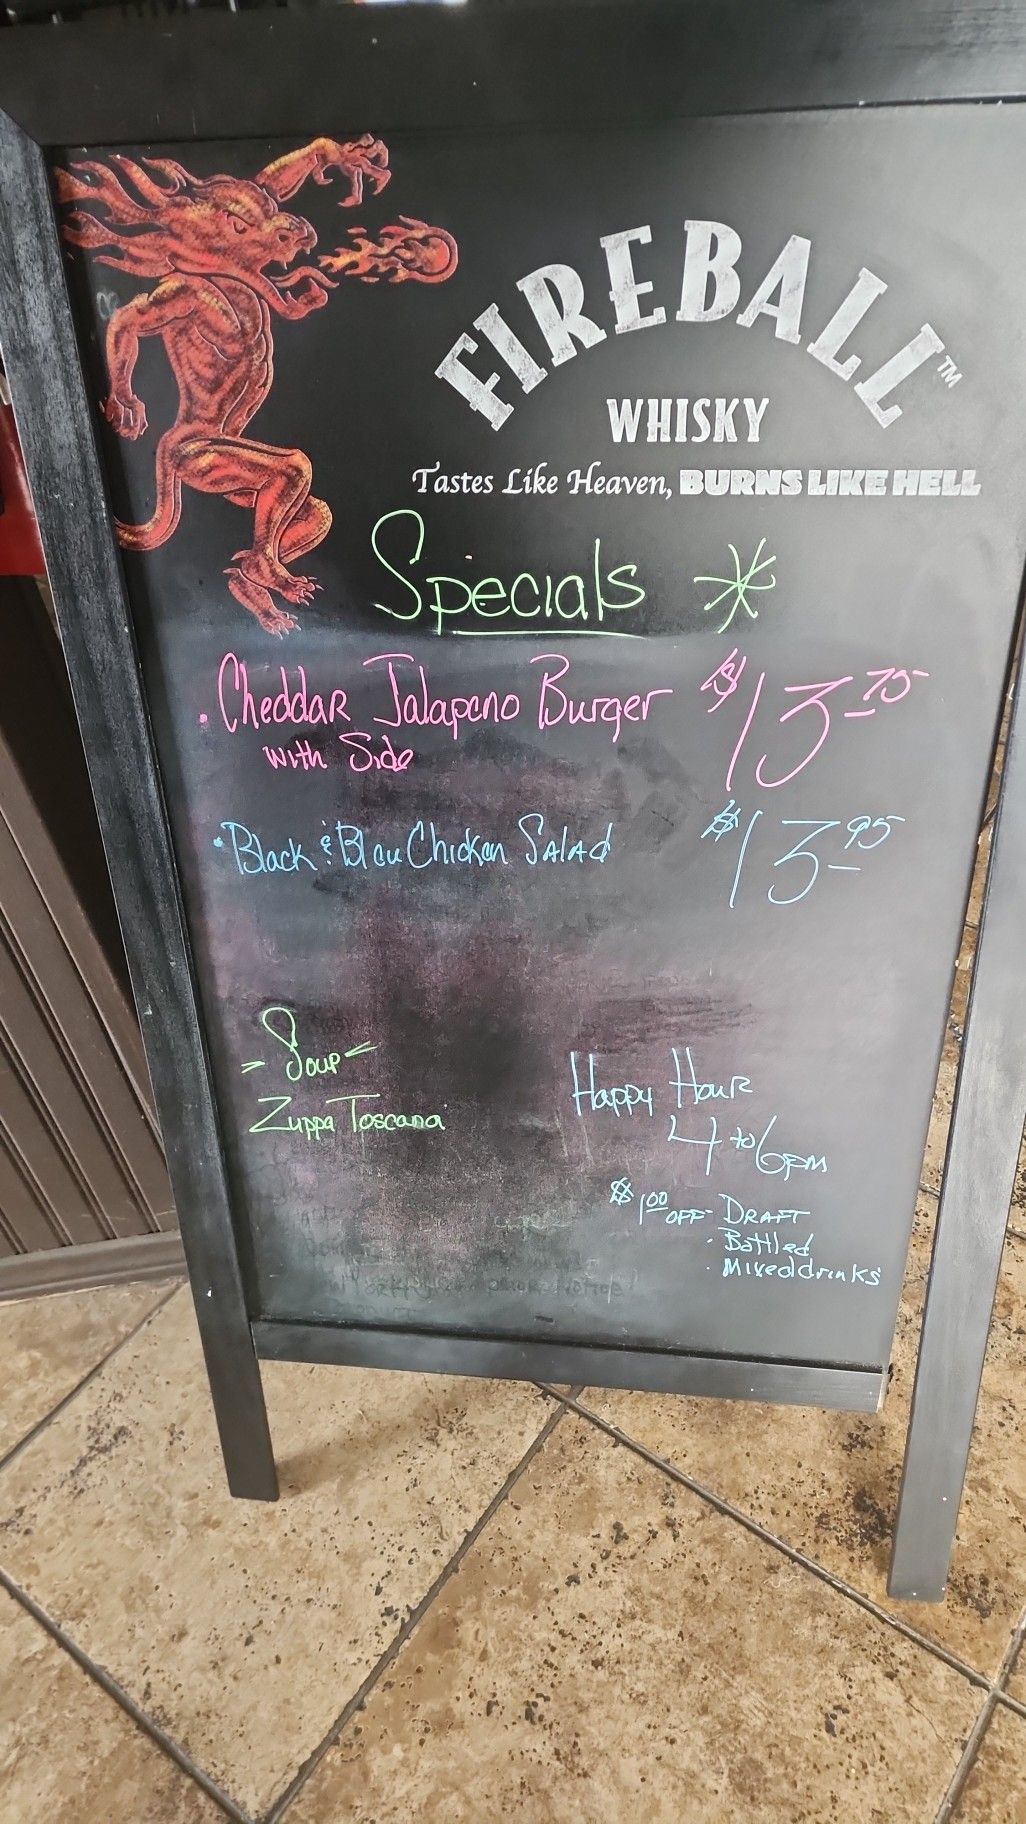 FIREBALL™
WHISKY
Tastes Like Heaven, BURNS LIKE HELL
Specials *
• Cheddar Jalapeno Burger $13.75
with Side
• Black & Bleu Chicken Salad $13.95
- Soup -
Zuppa Toscana
Happy Hour
4 to 6pm
$1.00 OFF - DRAFT
• Bottled
• Mixed drinks